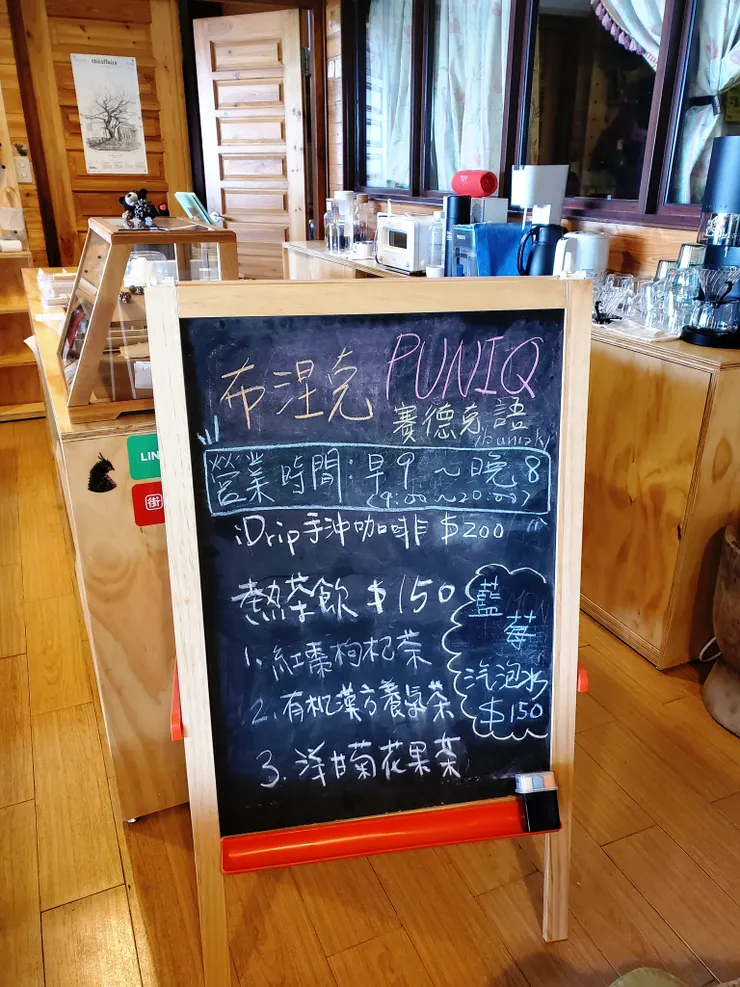 布涅克 PUNIQ
賽德克語
/puniq/
營業時間:早9~晚8
(9:00~20:00)
iDrip手沖咖啡 $200
熱茶飲 $150
1. 紅棗枸杞茶
2. 有机漢方養氣茶
3. 洋甘菊花果茶
藍
莓
汽泡水
$150
LIN
街